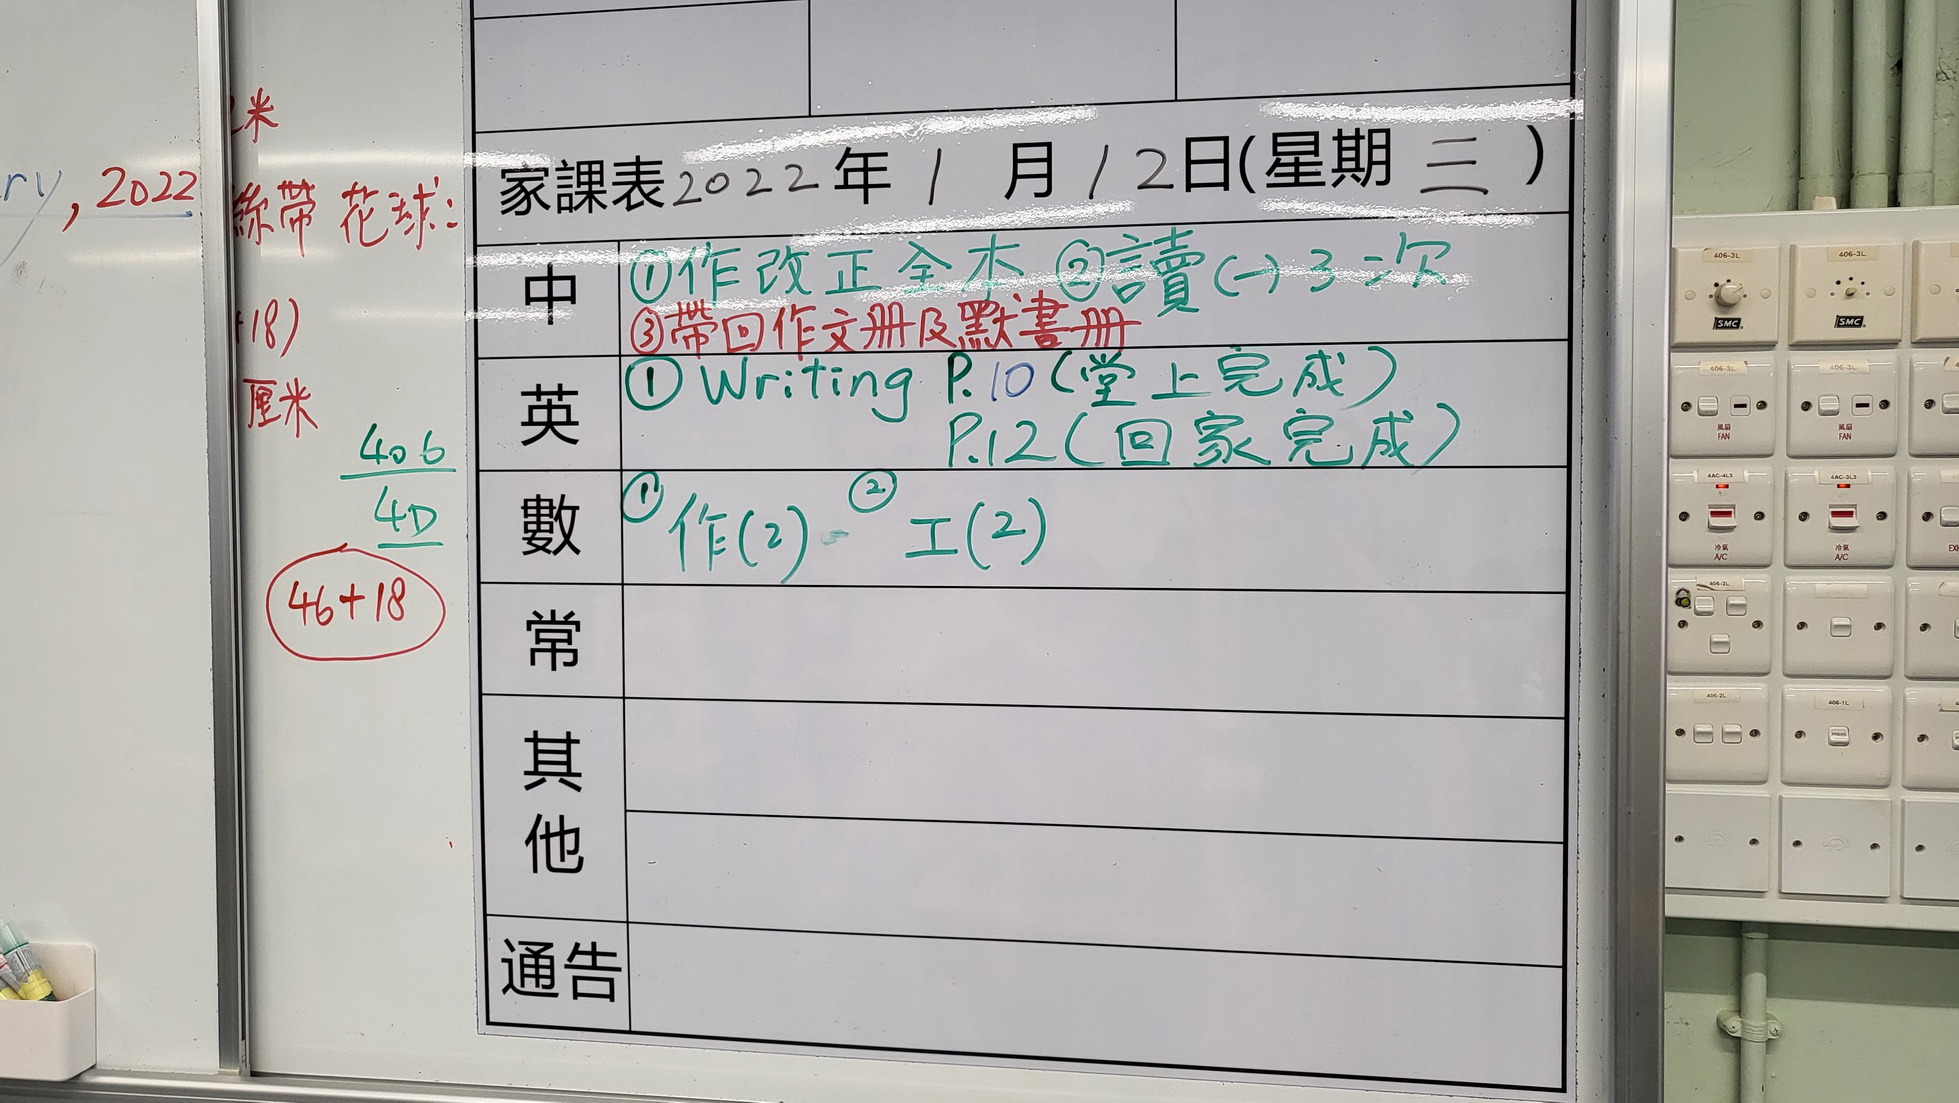 ry, 2022
米
絲帶 花球:
+18)
厘米
406
4D
46+18
家課表2022年1月12日(星期三)
中
①作改正全本 ②讀(一)3次
③帶回作文冊及默書冊
英
①Writing P.10(堂上完成)
P.12(回家完成)
數
①作(2) ②工(2)
常
其他
通告
406-3L
406-3L
SMC
SMC
406-3L
406-3L
風扇
FAN
風扇
FAN
4AC-4L3
4AC-3L3
冷氣
A/C
冷氣
A/C
406-2L
406-2L
406-1L
PRESS